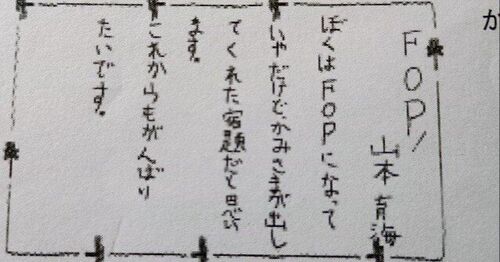 FOP/
山本育海
ぼくはFOPになって
いやだけど、かみさまが出し
てくれた宿題だと思い
ます。
これからもがんばり
たいです。
が